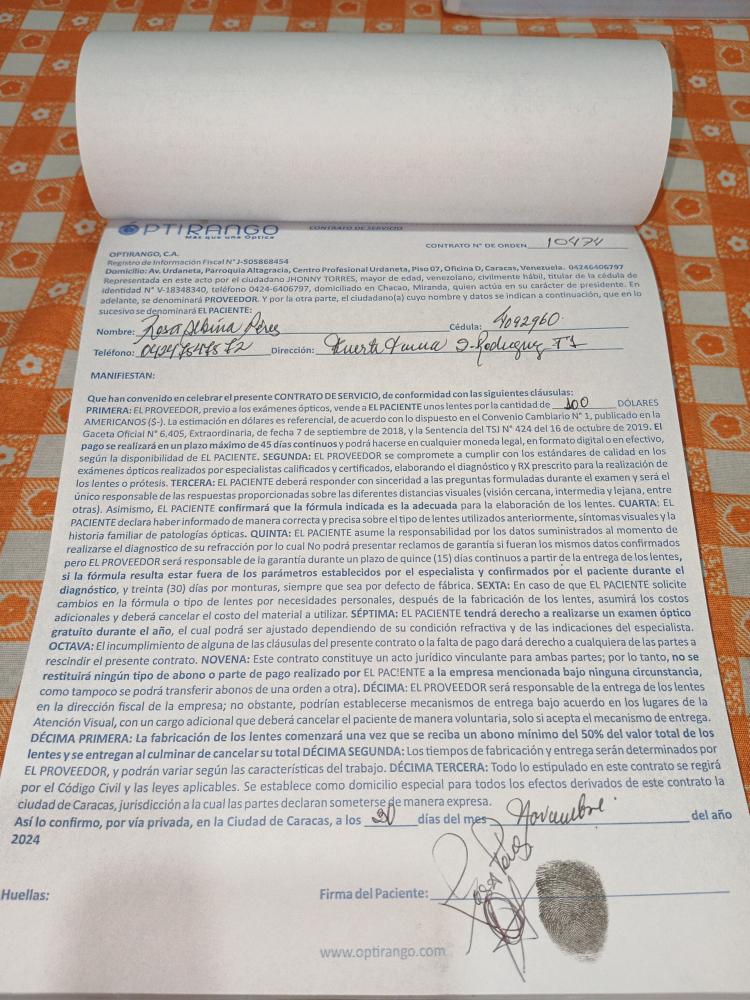 OPTIRANGO
Más que una Óptica
CONTRATO DE SERVICIO
CONTRATO N° DE ORDEN 10474
OPTIRANGO, C.A.
Registro de Información Fiscal N° J-505868454
Domicilio: Av. Urdaneta, Parroquia Altagracia, Centro Profesional Urdaneta, Piso 07, Oficina D, Caracas, Venezuela. 04246406797
Representada en este acto por el ciudadano JHONNY TORRES, mayor de edad, venezolano, civilmente hábil, titular de la cédula de
identidad N° V-18348340, teléfono 0424-6406797, domiciliado en Chacao, Miranda, quien actúa en su carácter de presidente. En
adelante, se denominará PROVEEDOR. Y por la otra parte, el ciudadano(a) cuyo nombre y datos se indican a continuación, que en lo
sucesivo se denominará EL PACIENTE:
Nombre: Rosa Albina Pérez Cédula: 4092960.
Teléfono: Dirección:
MANIFIESTAN:
Que han convenido en celebrar el presente CONTRATO DE SERVICIO, de conformidad con las siguientes cláusulas:
PRIMERA: EL PROVEEDOR, previo a los exámenes ópticos, vende a EL PACIENTE unos lentes por la cantidad de 100 DÓLARES
AMERICANOS ($-). La estimación en dólares es referencial, de acuerdo con lo dispuesto en el Convenio Cambiario N° 1, publicado en la
Gaceta Oficial N° 6.405, Extraordinaria, de fecha 7 de septiembre de 2018, y la Sentencia del TSJ N° 424 del 16 de octubre de 2019. El
pago se realizará en un plazo máximo de 45 días continuos y podrá hacerse en cualquier moneda legal, en formato digital o en efectivo,
según la disponibilidad de EL PACIENTE. SEGUNDA: EL PROVEEDOR se compromete a cumplir con los estándares de calidad en los
exámenes ópticos realizados por especialistas calificados y certificados, elaborando el diagnóstico y RX prescrito para la realización de
los lentes o prótesis. TERCERA: EL PACIENTE deberá responder con sinceridad a las preguntas formuladas durante el examen y será el
único responsable de las respuestas proporcionadas sobre las diferentes distancias visuales (visión cercana, intermedia y lejana, entre
otras). Asimismo, EL PACIENTE confirmará que la fórmula indicada es la adecuada para la elaboración de los lentes. CUARTA: EL
PACIENTE declara haber informado de manera correcta y precisa sobre el tipo de lentes utilizados anteriormente, síntomas visuales y la
historia familiar de patologías ópticas. QUINTA: EL PACIENTE asume la responsabilidad por los datos suministrados al momento de
realizarse el diagnostico de su refracción por lo cual No podrá presentar reclamos de garantía si fueran los mismos datos confirmados
pero EL PROVEEDOR será responsable de la garantía durante un plazo de quince (15) días continuos a partir de la entrega de los lentes,
si la fórmula resulta estar fuera de los parámetros establecidos por el especialista y confirmados por el paciente durante el
diagnóstico, y treinta (30) días por monturas, siempre que sea por defecto de fábrica. SEXTA: En caso de que EL PACIENTE solicite
cambios en la fórmula o tipo de lentes por necesidades personales, después de la fabricación de los lentes, asumirá los costos
adicionales y deberá cancelar el costo del material a utilizar. SÉPTIMA: EL PACIENTE tendrá derecho a realizarse un examen óptico
gratuito durante el año, el cual podrá ser ajustado dependiendo de su condición refractiva y de las indicaciones del especialista.
OCTAVA: El incumplimiento de alguna de las cláusulas del presente contrato o la falta de pago dará derecho a cualquiera de las partes a
rescindir el presente contrato. NOVENA: Este contrato constituye un acto jurídico vinculante para ambas partes; por lo tanto, no se
restituirá ningún tipo de abono o parte de pago realizado por EL PACIENTE a la empresa mencionada bajo ninguna circunstancia,
como tampoco se podrá transferir abonos de una orden a otra). DÉCIMA: EL PROVEEDOR será responsable de la entrega de los lentes
en la dirección fiscal de la empresa; no obstante, podrían establecerse mecanismos de entrega bajo acuerdo en los lugares de la
Atención Visual, con un cargo adicional que deberá cancelar el paciente de manera voluntaria, solo si acepta el mecanismo de entrega.
DÉCIMA PRIMERA: La fabricación de los lentes comenzará una vez que se reciba un abono mínimo del 50% del valor total de los
lentes y se entregan al culminar de cancelar su total DÉCIMA SEGUNDA: Los tiempos de fabricación y entrega serán determinados por
EL PROVEEDOR, y podrán variar según las características del trabajo. DÉCIMA TERCERA: Todo lo estipulado en este contrato se regirá
por el Código Civil y las leyes aplicables. Se establece como domicilio especial para todos los efectos derivados de este contrato la
ciudad de Caracas, jurisdicción a la cual las partes declaran someterse de manera expresa.
Así lo confirmo, por vía privada, en la Ciudad de Caracas, a los días del mes Noviembre. del año
2024
Huellas: Firma del Paciente:
www.optirango.com